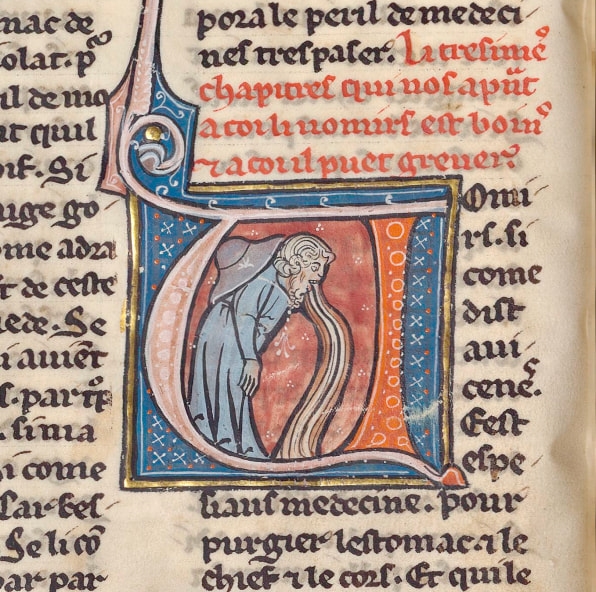 mac de
olat. p
il de mo
at quil
Si
uge go
me adra
t de ceste
iede. Se
i auiēt
s. part
. si ma
i come
sar. kes
Se li cō
par par
porale peril de medeci
nes trespaser. Li tresimeꝰ
chapitres qui uos apūt
a coi li uomirs est boinꝰ
⁊ a coi il puet greuer.
Uomi
rs. si
come
dist
aui
cenes.
Cest
espe
siaus medecine. pour
purgier lestomac. ⁊ le
chief ⁊ le cors. Et qui le